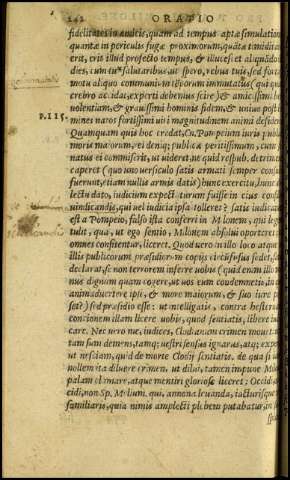 242 ORATIO
fidelitates in amicis, quam ad tempus aptæ simulationes:
quantæ in periculis fugæ proximorum, quàtæ timiditates.
erit, erit illud profecto tempus, & illucescet aliquando
dies, cum tu salutaribus, ut spero, rebus tuis, sed fortasse
motu aliquo communium temporum immutatus (qui quàm
crebro accidat, experti debemus scire) & amicissimi be
uolentiam, & grauissimi hominis fidem, & unius post
mines natos fortissimi uiri magnitudinem animi desideres
P. 115.
Quamquam quis hoc credat, Cn. Pompeium iuris publici
moris maiorum, rei deniq; publicæ peritissimum, cum
natus ei commiserit, ut uideret ne quid respub. detrimenti
caperet (quo uno uersiculo satis armati semper consules
fuerunt, etiam nullis armis datis) hunc exercitu, hunc de
lectu dato, iudicium expectaturum fuisse in eius consiliis
uindicandis, qui uel iudicia ipsa tolleret? satis iudicatum
est à Pompeio, falso ista conferri in Milonem, qui legem
tulit, qua, ut ego sentio, Milonem absolui oporteret
omnes confitentur, liceret. Quod uero in illo loco atque
illis publicorum præsidiorum copijs circunfusus sedet, satis
declarat, se non terrorem inferre uobis (quid enim illo mi
nus dignum quàm cogere, ut uos eum condemnetis, in quem
animaduertere ipse, & more maiorum, & suo iure posset)
sed præsidio esse: ut intelligatis, contra hesternam
concionem illam licere uobis, quod sentiatis, libere iudi
care. Nec uero me, iudices, Clodianum crimen mouet:
tum sum demens, tamq; uestri sensus ignarus, atq; expers,
ut nesciam, quid de morte Clodij sentiatis. de qua si iam
nollem ita diluere crimen, ut dilui, tamen impune Miloni
palam clamare, atque mentiri gloriose liceret: Occidi, oc
cidi, non Sp. Melium, qui, annona leuanda, iacturisque
familiaris, quia nimis amplecti plebem putabatur, in